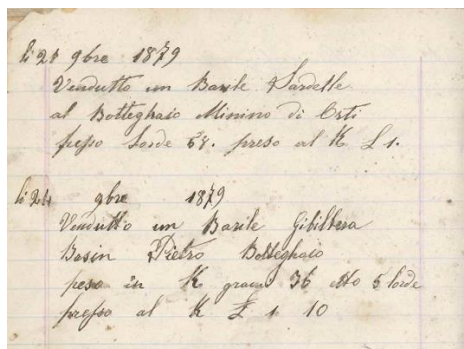 li 21 9bre 1879
Vendutto un Barile Sardelle
al Botteghaio Minino di Orti
pesso lorde 58. preso al K £ 1.
li 24 9bre 1879
Vendutto un Barile Gibilterra
Basin Pietro Botteghaio
peso in K 36 etto 5 lorde
presso al K £ 1 10